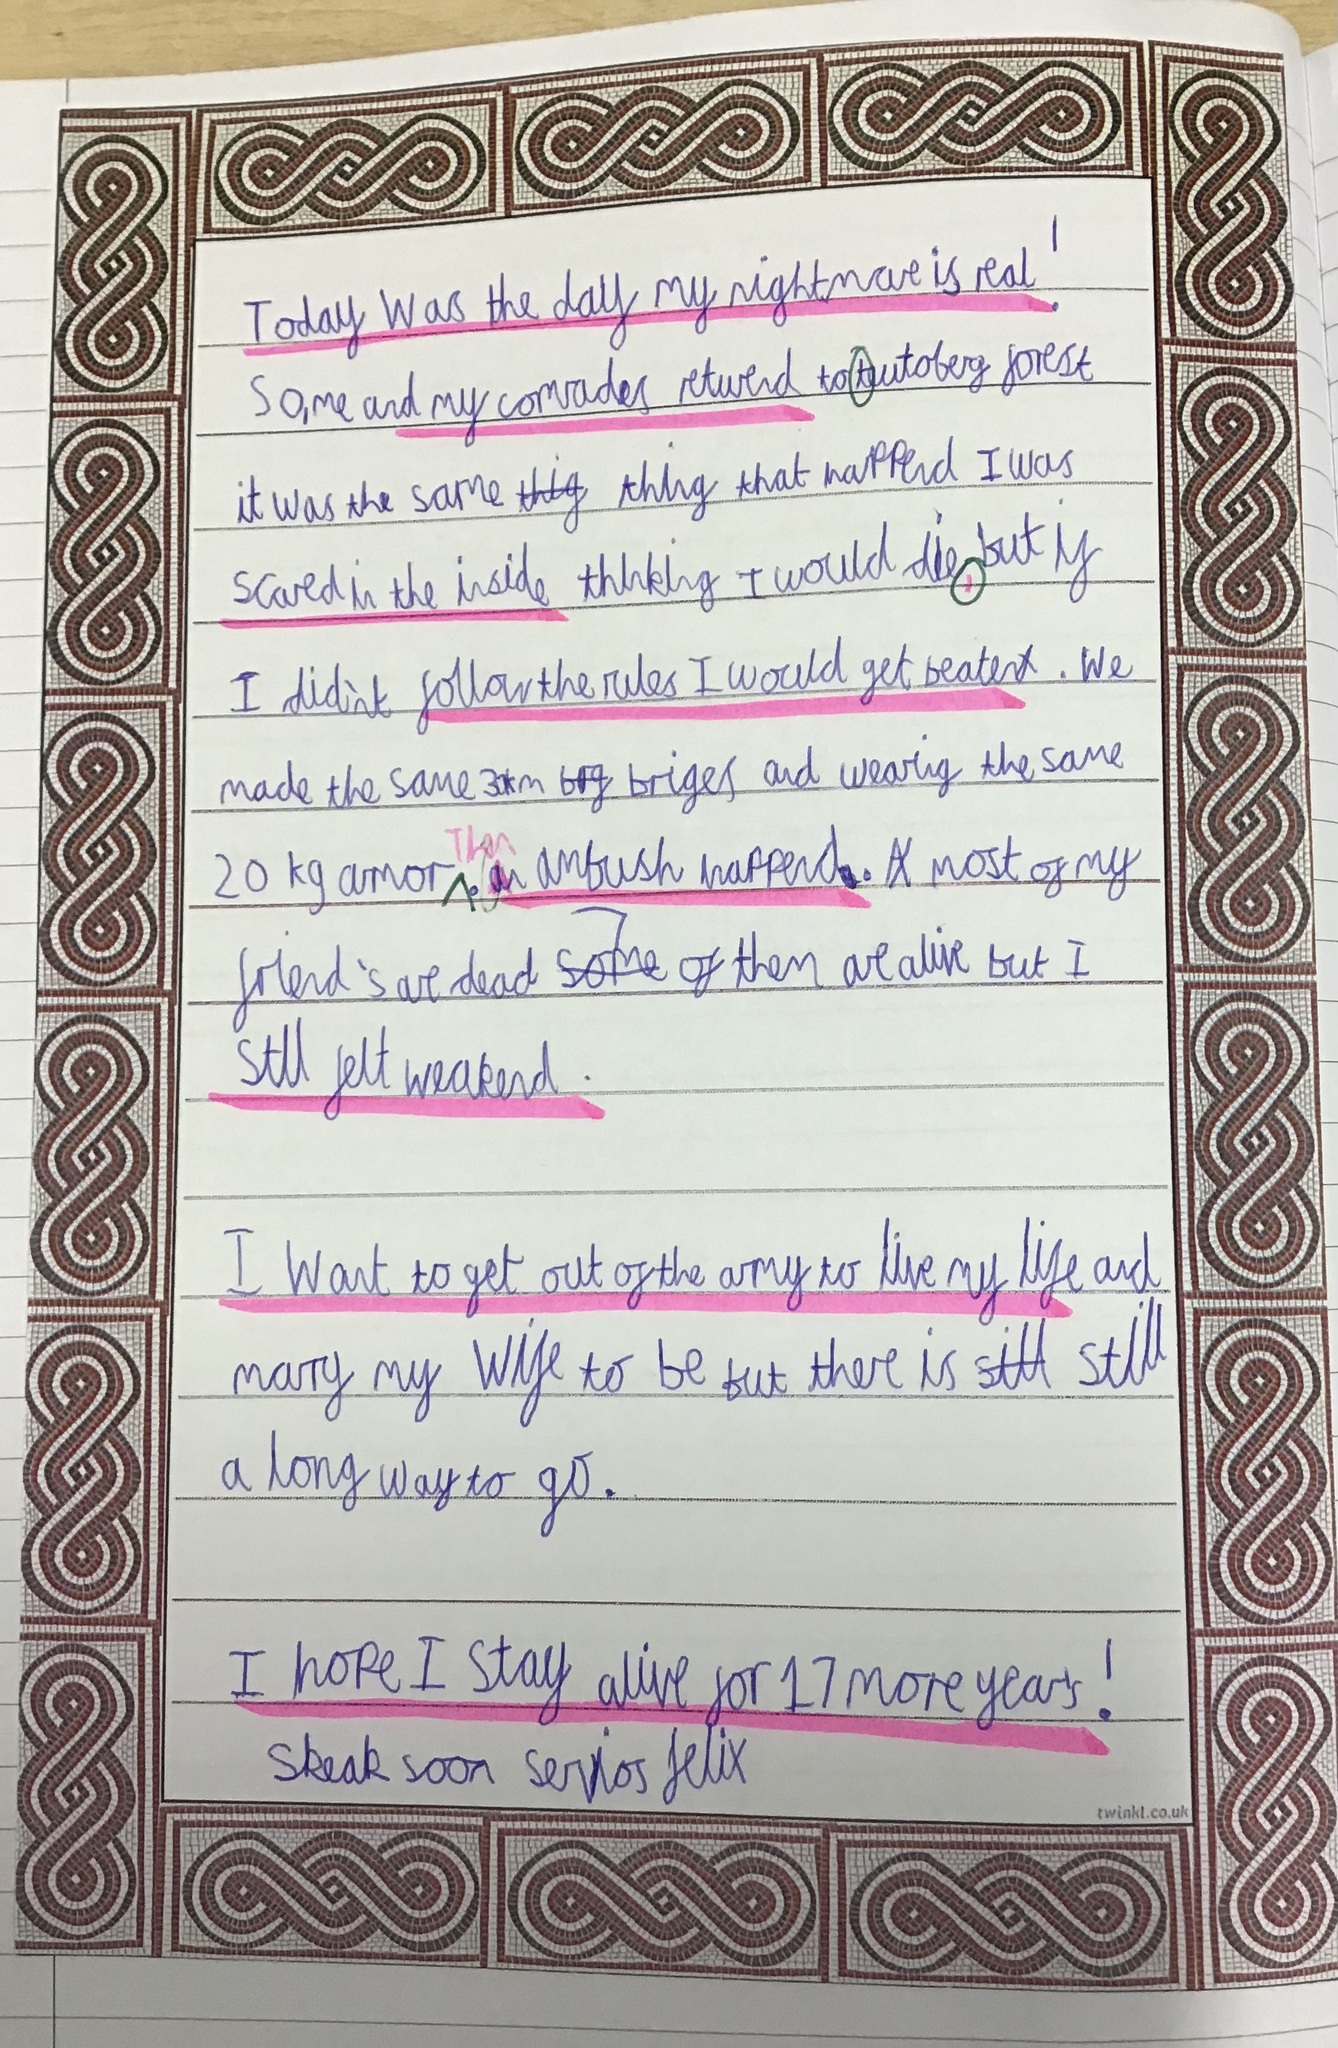 Today Was the day my nightmare is real!
So,me and my comrades returend to tutoberg forest
it was the same thig thing that happend I was
scared in the inside thinking I would die, but if
I didin't follow the rules I would get beatent. We
made the same 30km brig briges and wearing the same
Then
20 kg amor. an ambush happend. A most of my
friend's are dead some of them are alive but I
still felt weakend.
I Want to get out of the army to live my life and
mary my Wife to be but there is sitll still
a long way to go.
I hope I stay alive for 17 more years!
Skeak soon servios felix
twinkl.co.uk